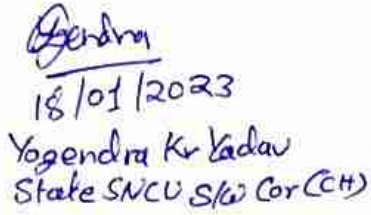 Yogendra
18/01/2023
Yogendra Kr Yadav
State SNCU S/W Cor (CH)